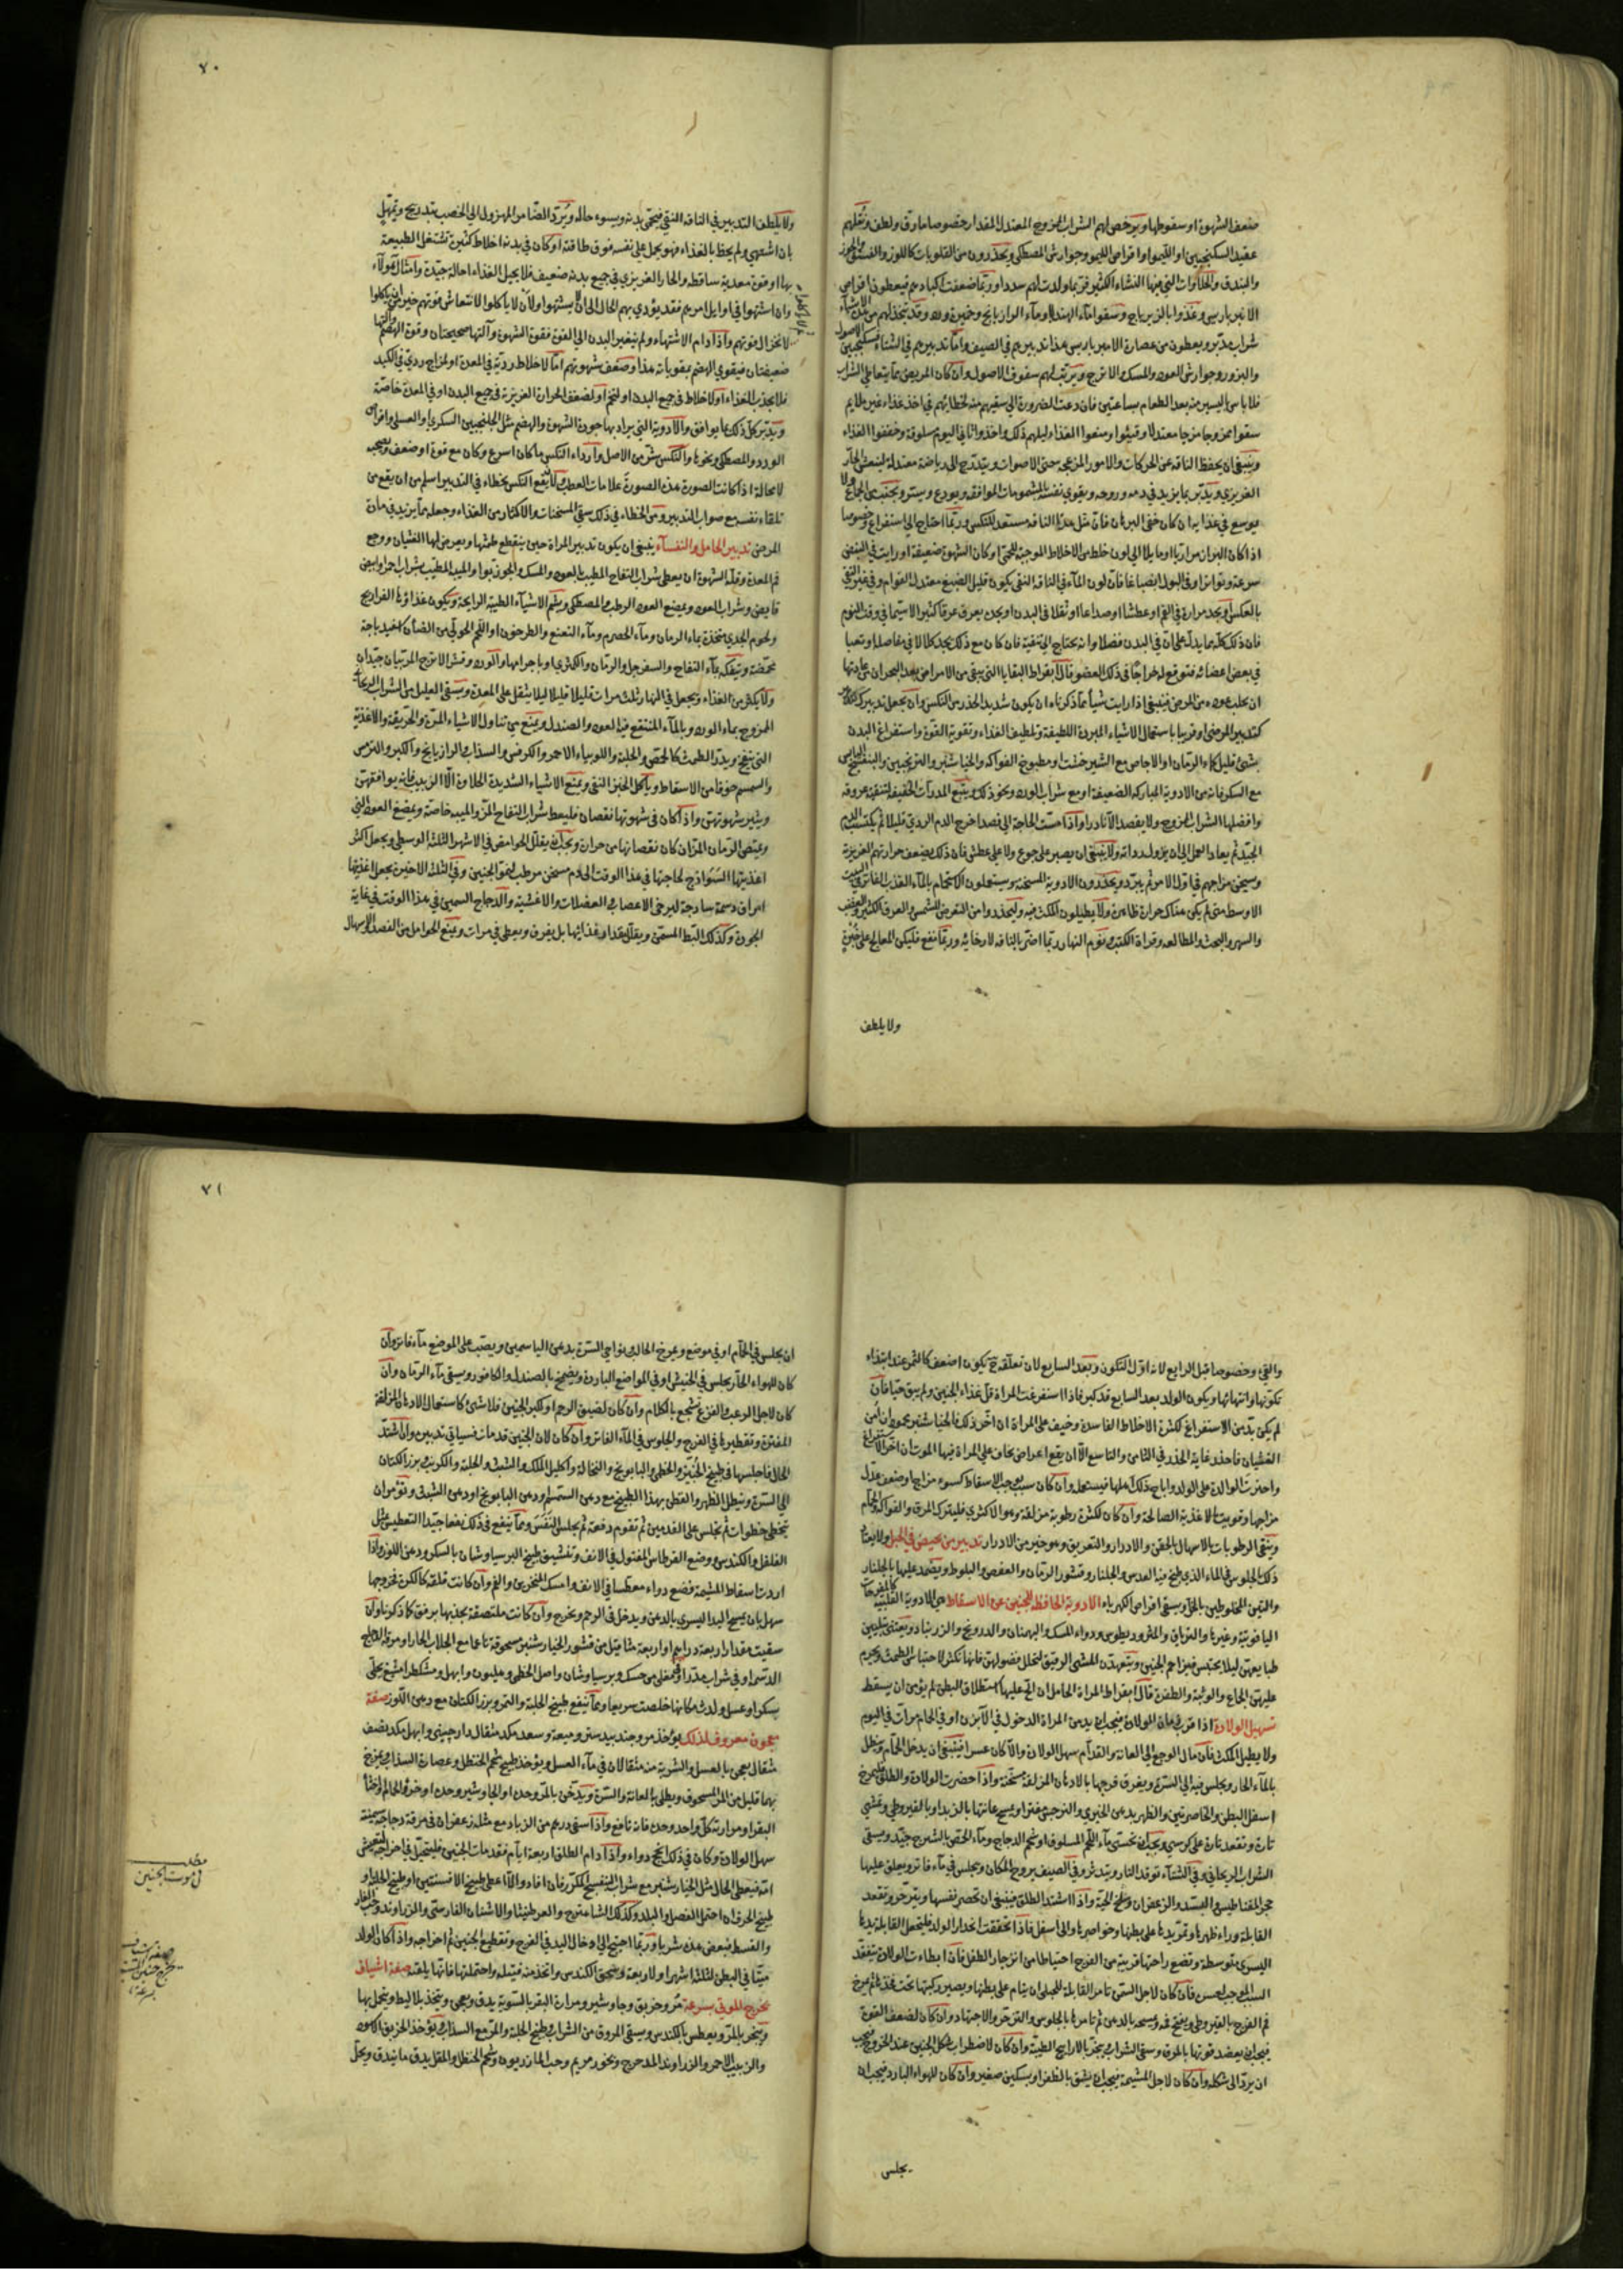 ضعف الشهوة او سقوطها ويرخص لهم الشراب الممزوج المعتدل المقدار خصوصا مارق ولطف ونقلهم
عقيد السكنجبين او الليمو او اقراص الليمو وجوارش المصطكى ويحذرون من القلويات كاللوز والفستق والجوز
والبندق والحلاوات التي فيها النشاء الكثير فربما ولدت لهم سددا وربما ضعفت اكبادهم فيعطون اقراص
الامبرباريس وغذوا بالزيرباج وسقوا ماء الهندبا وماء الرازيانج وقد يتخذ لهم من
شراب مدبر ويعطون من عصارة الامبرباريس هذا تدبيرهم في الصيف واما تدبيرهم في الشتاء فسكنجبين
والبزور وجوارش العود والمسك والاترج ويرتب لهم سفوف الاصول وان كان المريض ممن يتعاطى الشراب
فلا باس باليسير منه بعد الطعام بساعتين فان دعت الضرورة الى سقيهم منه لخطائهم في اخذ غذاء غير ملايم
سقوا ممزوجا مزجا معتدلا وقيئوا ومنعوا الغذاء ليلهم ذلك واخذوا في اليوم سلوقة وخففوا الغذاء
وينبغي ان يحفظ الناقه من الحركات والامور المزعجة حتى الاصوات ويتدرج الى رياضة معتدلة لينعش الحار
الغريزي ويدبر بما يزيد في دمه وروحه ويقوي نفسه بالمشمومات الموافقة ويودع ويسر ويجنب من الجماع ولا
يوسع في غذايه ان كان خفي البرء فان مثل هذا الناقه مستعد للنكس وربما احتاج الى استفراغ وخصوصا
اذا كان البراز مراريا او مايلا الى لون خلط من الاخلاط الموجبة للحمى او كان الشهوة ضعيفة او رايت في النبض
سرعة وتواترا وفي البول انصباغا فان لون الماء في الناقه النقي يكون قليل الصبغ معتدل القوام وفي غير النقي
بالعكس او يجد مرارة في الفم او عطشا او صداعا او ثقلا في البدن او يجده يعرق عرقا كثيرا لاسيما في وقت النوم
فان ذلك كله مما يدل على ان في البدن فضلا وانه يحتاج الى تنقية فان كان مع ذلك يجد كلالا في مفاصله او تعبا
في بعض اعضائه فتوقع له خراجا في ذلك العضو قال ابقراط البقايا التي تبقى من الامراض بعد البحران من عادتها
ان تجلب عودة من المرض فينبغي اذا رايت شيأ مما ذكرناه ان يكون شديد الحذر من النكس وان يجعل تدبيرك للناقه
كتدبير المرضى او قريبا باستعمال الاشياء المبردة اللطيفة وتلطيف الغذاء وتقوية القوة واستفراغ البدن
بشئ قليل كماء الرمان او الاجاص مع الشيرخشت ومطبوخ الفواكه والخيارشنبر والترنجبين والبنفسج اليابس
مع السكر فانه من الادوية المباركة الضعيفة او مع شراب الورد ونحو ذلك ويتبع المدرات الخفيفة لتنقية عروقه
وافضلها الشراب الممزوج ولا يفصد الا نادرا واذا مست الحاجة الى فصد اخرج الدم الردي قليلا ثم يكتسب الدم
الجيد ثم يعاد العمل الى ان يزول رداته ولا ينبغي ان يصبر على جوع ولا على عطش فان ذلك يضعف حرارتهم الغريزة
ويسخن مزاجهم في اول الامر ثم يبرد ويحذرون الادوية المسخنة ويستعملون الاستحمام بالماء العذب الفاتر في البيت
الاوسط متى لم يكن هناك حرارة ظاهرة ولا يطيلون المكث فيه وليحذروا من التعرض للشمس والعرق الكثير والغضب
والسهر والبحث والمطالعة وقراة الكتب ونوم النهار ربما اضر بالناقه لارخائه وربما نفع فليكن المعالج على خبرة
ولا يلطف
٧٠
ولا يلطف التدبير في الناقه النقي فيحمى بدنه ويسوء حاله ويرد الضامر المهزول الى الخصب بتدريج وتمهل
بان اشتهى ولم يحظ بالغذاء فهو يحمل على نفسه فوق طاقته او كان في بدنه اخلاط كثيرة تشتغل الطبيعة
بها او قوة معدية ساقطة والحار الغريزي في جميع بدنه ضعيف فلا يحيل الغذاء احالة جيدة وامثال هؤلاء
وان اشتهوا في اوايل امرهم فقد يؤدي بهم الحال الى ان لا يشتهوا ولان لا ياكلوا لانتعاش قوتهم خير من ان ياكلوا
لانخزال قوتهم واذا دام الاشتهاء ولم يتغير البدن الى القوة فقوة الشهوة وآلتها صحيحتان وقوة الهضم وآلتها
ضعيفتان فيقوى الهضم بمقوياته هذا وضعف شهوتهم اما لاخلاط ردية في المعدة او لمزاج ردي في الكبد
فلا يجذب الغذاء او لاخلاط في جميع البدن او لتخم او لضعف الحرارة الغريزية في جميع البدن او في المعدة خاصة
ويدبر كل ذلك بما يوافق والادوية التي يراد بها جودة الشهوة والهضم مثل الجلنجبين السكري والعسلي واقراص
الورد والمصطكى ونحوها والنكس شر من الاصل واردأ النكس ما كان اسرع وكان مع قوة او ضعف
لا محالة اذا كانت الصورة هذه الصورة علامات العطب ولان يقع النكس بخطاء في التدبير اسلم من ان يقع من
تلقاء نفسه مع صواب التدبير ومن الخطاء في ذلك سقي المسخنات والاكثار من الغذاء وجعله مما يزيد في مادة
المرض تدبير الحامل والنفساء ينبغي ان يكون تدبير المراة حين ينقطع طمثها ويعرض لها الغثيان ووجع
فم المعدة وقلة الشهوة ان يعطى شراب التفاح المطيب بالعود والمسك والجوزبوا والميبه المطيب بشراب حماض
قابض وشراب العود ويمضغ العود الرطب والمصطكى ويشم الاشياء الطيبة الرايحة ويكون غذاؤها الفراريج
ولحوم الجدي متخذة بماء الرمان وماء الحصرم وماء النعنع والطرخون او اللحم الحولي من الضأن اسفيدباجة
محمضة ويتفكه بماء التفاح والسفرجل والرمان والكمثرى او باجرامها والورد وقشر الاترج المربيان جيدان
ولا يكثر من الغذاء ويجعل في النهار ثلث مرات قليلا قليلا ليلا يثقل على المعدة ويسقى العليل من الشراب الريحاني
الممزوج بماء الورد وبالماء المنتقع فيه العود والصندل ويمنع من تناول الاشياء المرة والحريفة والاغذية
التي ينفخ ويدر الطمث كالحمص والحلبة واللوبياء الاحمر والكرفس والسذاب والرازيانج والكبر والترمس
والسمسم خوفا من الاسقاط وياكل الخبز النقي ويمنع الاشياء الشديدة الحلاوة الا الزبيب فانه يوافقهن
ويثير شهوتهن واذا كان في شهوتها نقصان فليعط شراب التفاح المز والميبه خاصة ويمضغ العود التي
ويمتص الرمان المز ان كان نقصانها من حرارة ويجب ان يقلل الحوامض في الاشهر الثلثة الوسطى ويجعل اكثر
اغذيتها السواذج لحاجتها في هذا الوقت الى دم مسخن مرطب لنمو الجنين وفي الثلثة الاخيرة يجعل اغذيتها
امراق دسمة ساذجة ليرخى الاعصاب والعضلات والاغشية والدجاج السمين في هذا الوقت في غاية
الجودة وكذلك البط المسمن ويقلل مقدار غذايها بل يفرق ويعطى في مرات ويمنع الحوامل من الفصد والاسهال
والقئ وخصوصا قبل الرابع لانه اول التكون وبعد السابع لان تعلقه ح يكون اضعف كالثمر عند ابتداء
تكونها وانتهائها ويكون الولد بعد السابع قد كبر فاذا استفرغت المراة قل غذاء الجنين ولم يبق حيا فان
لم يكن بد من الاستفراغ لكثرة الاخلاط الفاسدة وخيف على المراة ان اخر ذلك فالخيارشنبر محمود ان امن
الغشيان فاحذر غاية الحذر في الثامن والتاسع الا ان يقع اعراض يخاف على المراة فيها الموت ان اخر الاستفراغ
واخترت الوالدة على الولد واباح ذلك اهلها فيستعمله وان كان سبب يوجب الاسقاط كسوء مزاج او ضعف عدل
مزاجها وقويت بالاغذية الصالحة وان كان لكثرة رطوبة مزلقة وهو الاكثري فليترك المرق والفواكه والحمام
وينقى الرطوبات بالاسهال بالحقن والادرار والتعريق وهو خير من الادرار تدبير من يحيض في الحبل ولا يعتاد
ذلك الجلوس في الماء الذي طبخ فيه العدس والجلنار وقشور الرمان والعفص والبلوط ويضمد عليها بالجلنار
والتين المخلوطين بالخل ويسقى اقراص الكهرباء الادوية الحافظة للجنين من الاسقاط هي الادوية القلبية كالمفرحات
الياقوتية وغيرها والترياق والمثروديطوس ودواء المسك والبهمنان والدرونج والزرنباد ويعتنى بتليين
طبايعهن ليلا يحتبس فيزاحم الجنين ويتعهدن المشي الرفيق لتحلل فضولهن فانها تكثر لاحتباس الطمث ويحرم
عليهن الجماع والوثبة والطفرة قال ابقراط المراة الحامل ان الح عليها استطلاق البطن لم يؤمن ان يسقط
تسهيل الولادة اذا قرب زمان الولادة فيجب ان يدمن المراة الدخول في الآبزن او في الحمام مرات في اليوم
ولا يطيل المكث فان مال الوجع الى العانة والقدام سهل الولادة والا كان عسرا فينبغي ان يدخل الحمام وينطل
بالماء الحار ويجلس فيه الى السرة ويغرق فرجها بالادهان المزلقة مسخنة واذا حضرت الولادة والطلق فليمرخ
اسفل البطن والخاصرتين والظهر بدهن الخيري والنرجس مفترا ويمسح عانتها بالزبد او بالقيروطي وتمشي
تارة وتقعد تارة على كرسي ويجب ان تحتسي ماء اللحم المسلوق او شحم الدجاج وماء الحمص بالشيرج جيد ويسقى
الشراب الريحاني وفي الشتاء توقد النار ويتدثر وفي الصيف يروح المكان ويجلس في ماء فاتر ويعلق عليها
حجر المغناطيس والبسد والزعفران وسلخ الحية واذا اشتد الطلق فينبغي ان تحصر نفسها ويتزحر وتقعد
القابلة وراء ظهرها وتمر يدها على بطنها وخواصرها والى اسفل فاذا تحققت انحدار الولد فليجعل القابلة يدها
اليسرى متوسطة وتضع راحتها قريبة من الفرج احتياطا من انزجار الطفل فان ابطاءت الولادة تتفقد
السبب الموجب للعسر فان كان لاجل السمن تامر القابلة للحبلى ان ينام على بطنها ويصير ركبتها تحت فخذها ثم يمرخ
فم الفرج بالقيروطي ويفتح فمه ويمسحه بالدهن ثم تامرها بالجلوس والتزحر والاجتهاد وان كان لضعف القوة
فيجب ان يعضد قوتها بالمرق وسقي الشراب ويبخر بالاراييح الطيبة وان كان لاضطراب شكل الجنين عند الخروج فيجب
ان يرد الى شكله وان كان لاجل المشيمة فيجب ان يشق بالظفر او بسكين صغير وان كان للهواء البارد فيجب ان
يجلس
٧١
ان يجلس في الحمام او في موضع ويمرخ الحالب ونواحي السرة بدهن الياسمين ويصب على الموضع ماء فاتر وان
كان للهواء الحار يجلس في الخيش او في المواضع الباردة ويضمخ بالصندل والكافور ويسقى ماء الرمان وان
كان لاجل الرعب والفزع تشجع بالكلام وان كان لضيق الرحم او لكبر الجنين فلا شئ كاستعمال الادهان المزلقة
المفترة وتقطيرها في الفرج والجلوس في الماء الفاتر وان كان لان الجنين قد مات فسياتي تدبيره وان اشتد
الحال فاجلسها في طبيخ الخبيز والخطمي والبابونج والنخالة واكليل الملك والشبث والحلبة والكرنب وبزر الكتان
الى السرة وينطل الظهر والقطن بهذا الطبيخ مع دهن السمسم او دهن البابونج او دهن الشبث وتؤمر ان
يتخطى خطوات ثم تجلس على القدمين ثم تقوم دفعة ثم يجلس النفس ومما ينفع في ذلك نفعا جيدا التعطيس بمثل
الفلفل والكندس ووضع القرطاس المفتول في الانف وتنشيق طبيخ البرسياوشان بالسكر ودهن اللوز واذا
اردت اسقاط المشيمة فضع دواء معطسا في الانف وامسك المنخرين والفم وان كانت قلقة كان خروجها
سهل بان يمسح اليد اليسرى بالدهن ويدخل في الرحم وتخرج وان كانت ملتصقة يجذبها برفق كما ذكرنا وان
سقيت مقدار اربعة دراهم او اربعة مثاقيل من قشور الخيارشنبر مسحوقة ناعما مع الجلاب الحار او مرقة الدجاج
الدسمة او في شراب مدبر او مغلي من حسك وبرسياوشان واصل الخطمي وهليون وابهل ومشكطرامشيع يحلى
بسكر او عسل ولدت مكانها خلصت سريعا ومما ينفع طبيخ الحلبة والتمر وبزر الكتان مع دهن اللوز صفة
معجون معروف لذلك يؤخذ مر وجندبيدستر وميعة وسعد مكد مثقال دارجيني وابهل مكد نصف
مثقال يعجن بالعسل والشربة منه مثقالان في ماء العسل ويؤخذ طبيخ شحم الحنظل وعصارة السذاب يمزج
بهما قليل من المر المسحوق ويطلى به العانة والسرة ويدخن بالمر وحده او الجاوشير وحده او خرؤ الحمام او خثا
البقر او مرارته كل واحد وحده فانه نافع واذا استى درهم من الزباد مع مثله زعفران في مرقة دجاجة سمينة
سهل الولادة وكان في ذلك انجح دواء واذا دام الطلق اربعة ايام فقد مات الجنين فليتحيل في اخراجه لتعيش
امه فيعطى الحامل مثل الخيارشنبر مع شراب البنفسج المكرر فان افاد والا اعطى طبيخ الافسنتين او طبيخ الحلبة او
طبيخ الحرف ان احتمل الفصل والبلد وكذلك الشاهترج والعرطنيثا والاشنان الفارسي والزراوند وحب الغار
والقسط فبعض هذه شربا وربما احتيج الى ادخال اليد في الفرج وتقطيع الجنين ثم اخراجه واذا كان الولد
ميتا في البطن لثلثة اشهر او لاربعة وسحق الكندس واتخذ منه فتيلة واحتملتها فانها يلقيه صفة اشياف
تخرج الموتى بسرعة مر وخربق وجاوشير ومرارة البقر بالسوية يدق ويعجن ويتخذ بلاليط ويتحمل بها
ويتبخر بالمر ويعطس بالكندس ويسقى المروق من الشراب وطبيخ الحلبة والمر مع السذاب او يؤخذ الخربق الاسود
والزبيب الاحمر والزراوند المدحرج وبخور مريم وحب المازريون وشحم الحنظل والمقل يدق ما يندق ويحل
مطلب
في موت الجنين